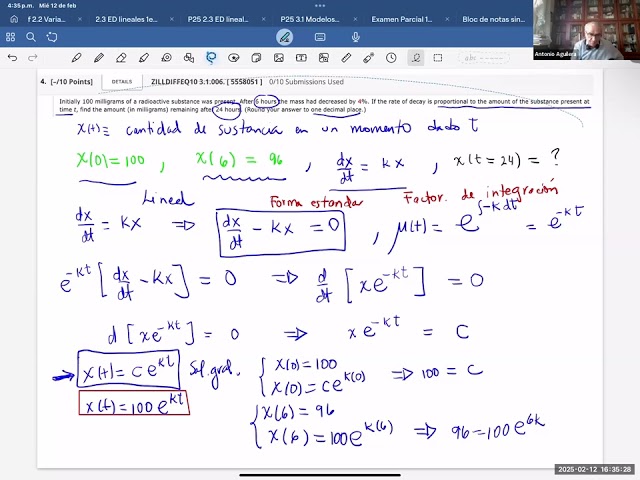 4:35 p.m. Mié 12 de feb
f 2.2 Varia... 2.3 ED lineales 1e... P25 2.3 ED lineal... P25 3.1 Modelos... Examen Parcial 1... Bloc de notas sin...
Antonio Aguilera
4. [-/10 Points] DETAILS ZILLDIFFEQ10 3.1.006. [5558051] 0/10 Submissions Used
Initially 100 milligrams of a radioactive substance was present. After 6 hours the mass had decreased by 4%. If the rate of decay is proportional to the amount of the substance present at
time t, find the amount (in milligrams) remaining after 24 hours. (Round your answer to one decimal place.)
X(t) ≡ cantidad de sustancia en un momento dado t
X(0) = 100 , X(6) = 96 , dx/dt = kx , x(t = 24) = ?
Lineal Forma estandar Factor de integración
dx/dt = kx ⇒ dx/dt - kx = 0 , μ(t) = e^∫-kdt = e^-kt
e^-kt [dx/dt - kx] = 0 ⇒ d/dt [xe^-kt] = 0
d[xe^-kt] = 0 ⇒ xe^-kt = C
→ X(t) = ce^kt Sol. gral. { X(0) = 100
X(0) = ce^k(0) ⇒ 100 = C
x(t) = 100e^kt
{ X(6) = 96
X(6) = 100e^k(6) ⇒ 96 = 100e^6k
2025-02-12 16:35:28